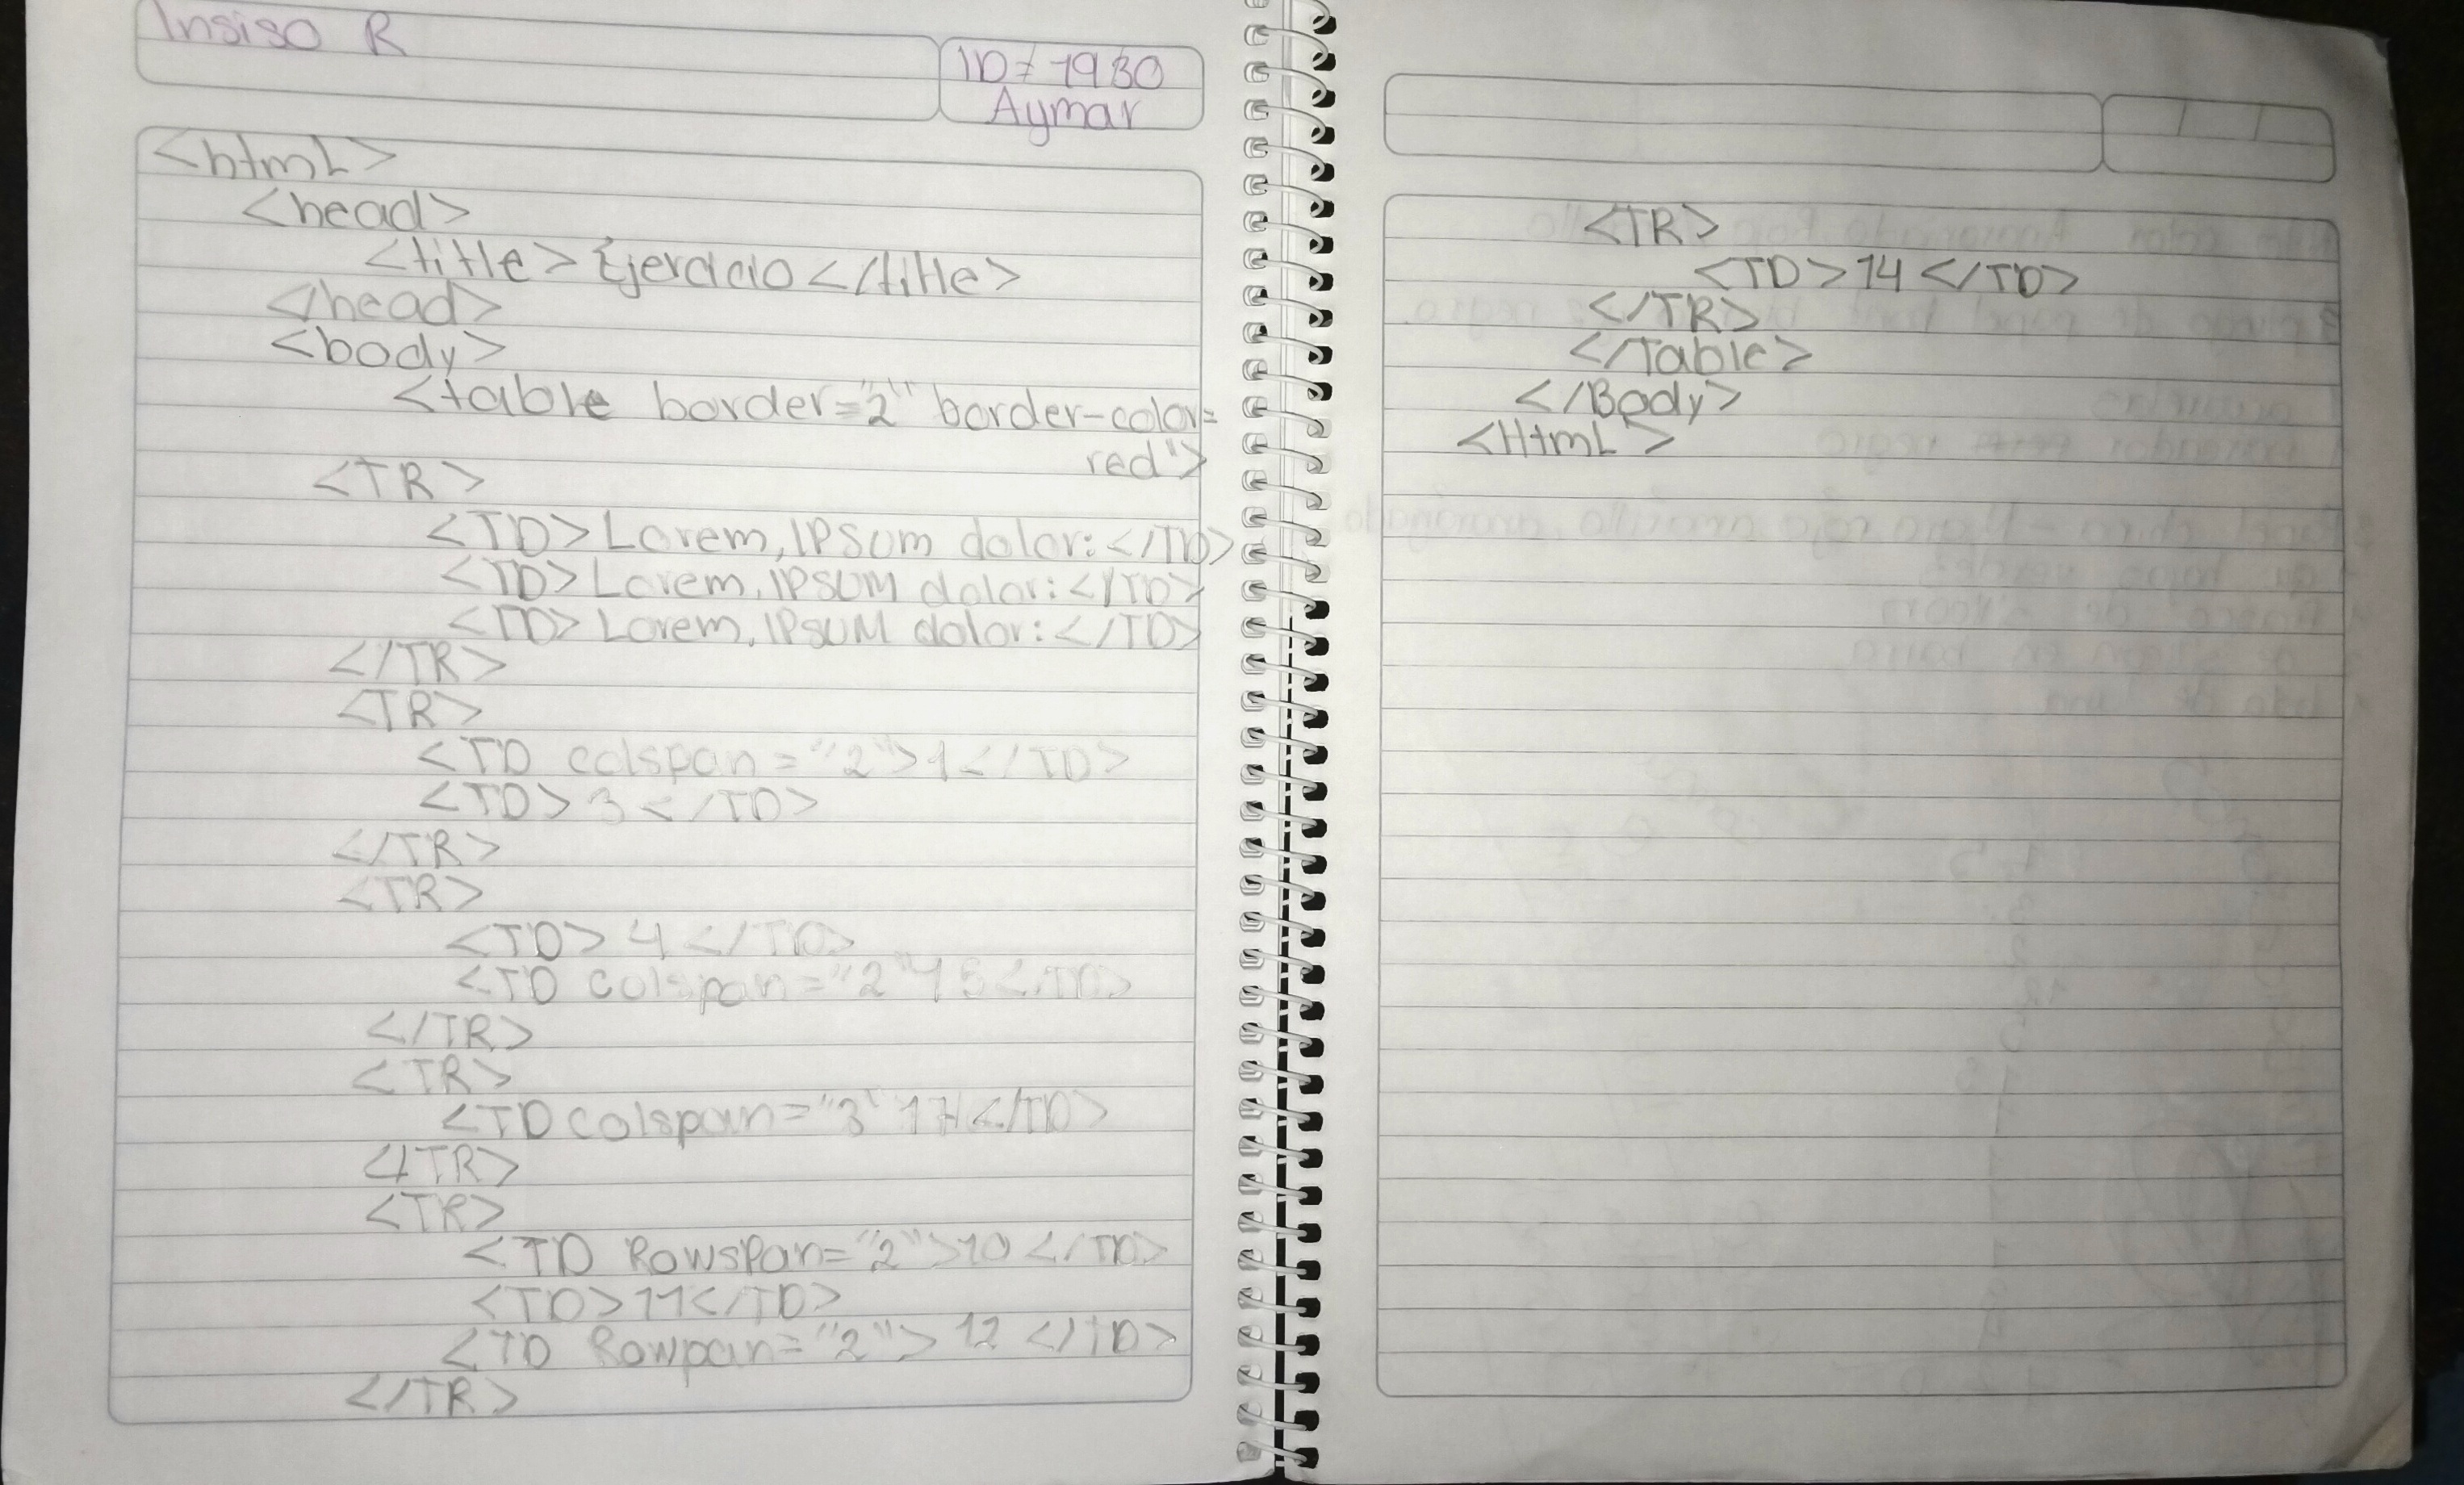 Insiso R
ID= 1930
Aymar
<html>
<head>
<title> Ejercicio </title>
</head>
<body>
<table border="2" border-color=
red">
<TR>
<TD> Lorem, IPSum dolor: </TD>
<TD> Lorem, IPSUM dolor: </TD>
<TD> Lorem, IPSUM dolor: </TD>
</TR>
<TR>
<TD colspan = "2">1</TD>
<TD> 3 </TD>
</TR>
<TR>
<TD> 4 </TD>
<TD colspan="2" 5 </TD>
</TR>
<TR>
<TD colspan="3" </TD>
</TR>
<TR>
<TD RowsPan="2">10 </TD>
<TD>11</TD>
<TD Rowpan="2"> 12 </TD>
</TR>
<TR>
<TD>14 </TD>
</TR>
</Table>
</Body>
<HtmL>